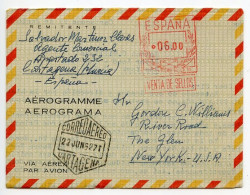 REMITENTE
Salvador Martínez
Agente Comercial
Apartado 232
Cartagena (Murcia)
España
ESPAÑA
*06.00
VENTA DE SELLOS
AÉROGRAMME
AEROGRAMA
CORREO AEREO
22 JUN 1971
CARTAGENA
VIA AÉREA
PAR AVION
Mr.
Gordon C. Williams
River Road
The Glen
New York - U.S.A